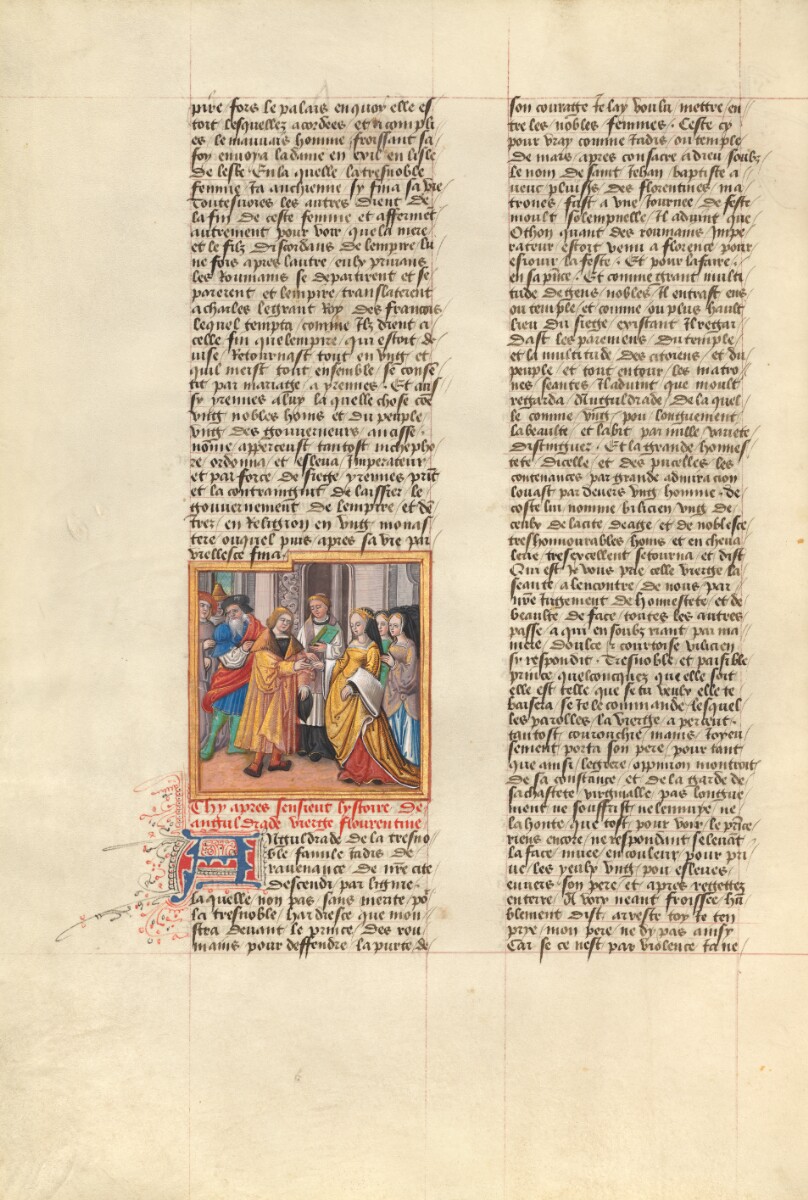 pire fors le palais en quoy elle es
toit lesquellez acordees et acompli
es le mauuais homme froissant sa
foy enuoya la dame en exil en lisle
de leste En la quelle la tresnoble
femme ia anchienne sy fina sa vie
Toutesuoies les autres dient de
la fin de ceste femme et afferment
autrement pour voir que la mere
et le filz discordans de lempire lu
ne fois apres lautre eulx priuans
les Roumains se departirent et se
parerent et lempire translaterent
a charles le grant Roy des francois
lequel tempta comme Ilz dient a
celle fin que lempire qui estoit de
uise Retournast tout en vng et
quil meist tout ensemble se conse
tit par mariage a yrennes Et aus
sy yrennes a luy la quelle chose
vng nobles homs et du peuple
vng des gouuerneurs
nomme apperceust tantost nicepho
re ordonna et esleua Imperateur
et par force de siege yrennes
et la contraingnit de laissier le
gouuernement de lempire et den
trer en Religion en vng monas
tere ouquel puis apres sa vie par
viellesce fina
Chy apres sensieut lystoire de
anguldrade vierge flourentine
Anguldrade de la tresno
ble famile iadis de
rauenance de nre cite
descendi par lignie
la quelle non pas sans merite
la tresnoble hardiesce que mon
stra deuant le prince des rou
mains pour deffendre la purte de
son couraige Je lay voulu mettre en
tre les nobles femmes Ceste cy
pour vray comme Iadis ou temple
de mars apres consacre a dieu soubz
le nom de saint Jehan baptiste a
uenc pluiss des florentines ma
trones fust a vne Journee de feste
moult solempnelle Il aduint que
Othon quant des roumains Impe
rateur estoit venu a florence pour
esiouir la feste Et pour la faire
en sa Et comme grant multi
tude de gens nobles Il entrast ens
ou temple et comme ou plus hault
lieu du siege existant Il regar
dast les paremens du temple
et la multitude des citoiens et du
peuple et tout entour les matro
nes seantes Il aduint que moult
regarda Anguldrade de la quel
le comme vng pou longuement
la beaulte et labit par mille variete
distinguer Et la grande hones
tete dicelle et des pucelles les
contenances par grande admiracion
louast par deuers vng homme de
coste lui nomme bilicien vng de
ceulx de la cite deage et de noblesce
tres honnourables homs et en cheua
lerie tres excellent se tourna et dist
Qui est Je vous prie celle vierge la
seante a lencontre de nous par
nre Iugement de honnestete et de
beaulte de face toutes les autres
passe a qui en soubz riant par ma
niere doulce courtoise vilicien
sy respondit Tresnoble et paisible
prince quelconcquez que elle soit
elle est telle que se tu veulx elle te
baisera se Je le commande lesquel
les parolles la vierge a perceut
tantost couronchie mains Joyeu
sement porta son pere pour tant
que ainsi legiere oppinion monstroit
de sa constance et de la garde de
sa chastete virginalle pas longue
ment ne souffrist ne lennuye ne
la honte que tost pour voir le prince
riens encore ne respondant se leuast
la face muee en couleur pour
ue les yeulx vng pou esleues
enuers son pere et apres regettez
en terre Il voix neant froissee hu
blement dist arreste toy Je ten
prye mon pere ne dy pas ainsy
Car se ce nest par violence ia ne